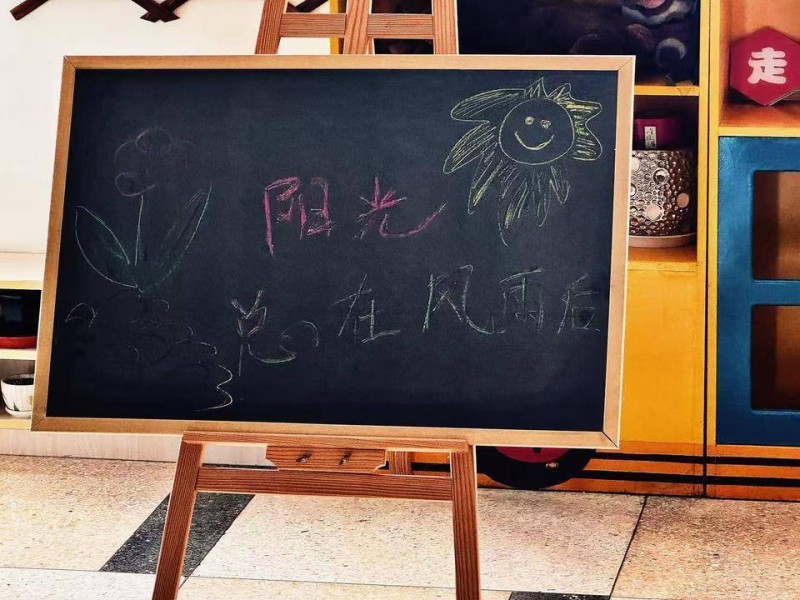 阳光
总在风雨后
走